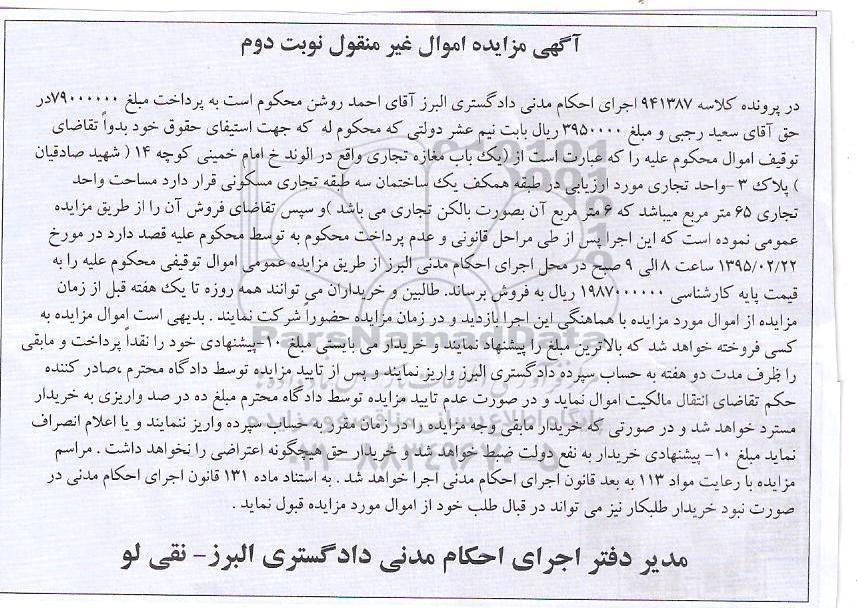 آگهی مزایده اموال غیر منقول نوبت دوم
در پرونده کلاسه ۹۴۱۳۸۷ اجرای احکام مدنی دادگستری البرز آقای احمد روشن محکوم است به پرداخت مبلغ ۷۹۰۰۰۰۰۰در
حق آقای سعید رجبی و مبلغ ۳۹۵۰۰۰۰ ریال بابت نیم عشر دولتی که محکوم له که جهت استیفای حقوق خود بدواً تقاضای
توقیف اموال محکوم علیه را که عبارت است از (یک باب مغازه تجاری واقع در الوند خ امام خمینی کوچه ۱۴ ( شهید صادقیان
) پلاک ۳ -واحد تجاری مورد ارزیابی در طبقه همکف یک ساختمان سه طبقه تجاری مسکونی قرار دارد مساحت واحد
تجاری ۶۵ متر مربع میباشد که ۶ متر مربع آن بصورت بالکن تجاری می باشد )و سپس تقاضای فروش آن را از طریق مزایده
عمومی نموده است که این اجرا پس از طی مراحل قانونی و عدم پرداخت محکوم به توسط محکوم علیه قصد دارد در مورخ
۱۳۹۵/۰۲/۲۲ ساعت ۸ الی ۹ صبح در محل اجرای احکام مدنی البرز از طریق مزایده عمومی اموال توقیفی محکوم علیه را به
قیمت پایه کارشناسی ۱۹۸۷۰۰۰۰۰۰ ریال به فروش برساند. طالبین و خریداران می توانند همه روزه تا یک هفته قبل از زمان
مزایده از اموال مورد مزایده با هماهنگی این اجرا بازدید و در زمان مزایده حضوراً شرکت نمایند . بدیهی است اموال مزایده به
کسی فروخته خواهد شد که بالاترین مبلغ را پیشنهاد نمایند و خریدار می بایستی مبلغ ۱۰-پیشنهادی خود را نقداً پرداخت و مابقی
را ظرف مدت دو هفته به حساب سپرده دادگستری البرز واریز نمایند و پس از تایید مزایده توسط دادگاه محترم ،صادر کننده
حکم تقاضای انتقال مالکیت اموال نماید و در صورت عدم تایید مزایده توسط دادگاه محترم مبلغ ده در صد واریزی به خریدار
مسترد خواهد شد و در صورتی که خریدار مابقی وجه مزایده را در زمان مقرر به حساب سپرده واریز ننمایند و یا اعلام انصراف
نماید مبلغ ۱۰- پیشنهادی خریدار به نفع دولت ضبط خواهد شد و خریدار حق هیچگونه اعتراضی را نخواهد داشت . مراسم
مزایده با رعایت مواد ۱۱۳ به بعد قانون اجرای احکام مدنی اجرا خواهد شد . به استناد ماده ۱۳۱ قانون اجرای احکام مدنی در
صورت نبود خریدار طلبکار نیز می تواند در قبال طلب خود از اموال مورد مزایده قبول نماید .
مدیر دفتر اجرای احکام مدنی دادگستری البرز- نقی لو
ParsNamadData